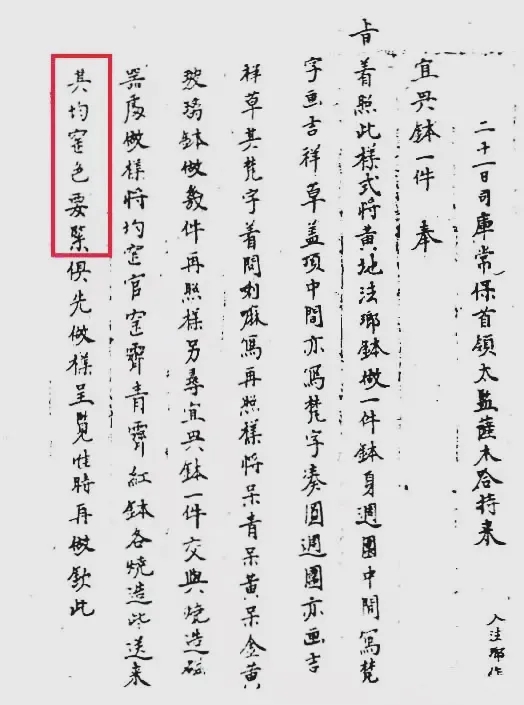 二十一日司庫常保首領太監薩木哈持来
入法瑯作
宜興鉢一件　奉
旨着照此樣式將黃地法瑯鉢做一件鉢身週圍中間寫梵
字画吉祥草盖頂中間亦寫梵字湊圓週圍亦画吉
祥草其梵字着問喇嘛寫再照樣將呆青呆黃呆金黃
玻璃鉢做幾件再照樣另尋宜興鉢一件交與燒造磁
器處做樣將均窑官窑霽青霽紅鉢各燒造些送来
其均窑色要緊俱先做樣呈覽准時再做欽此